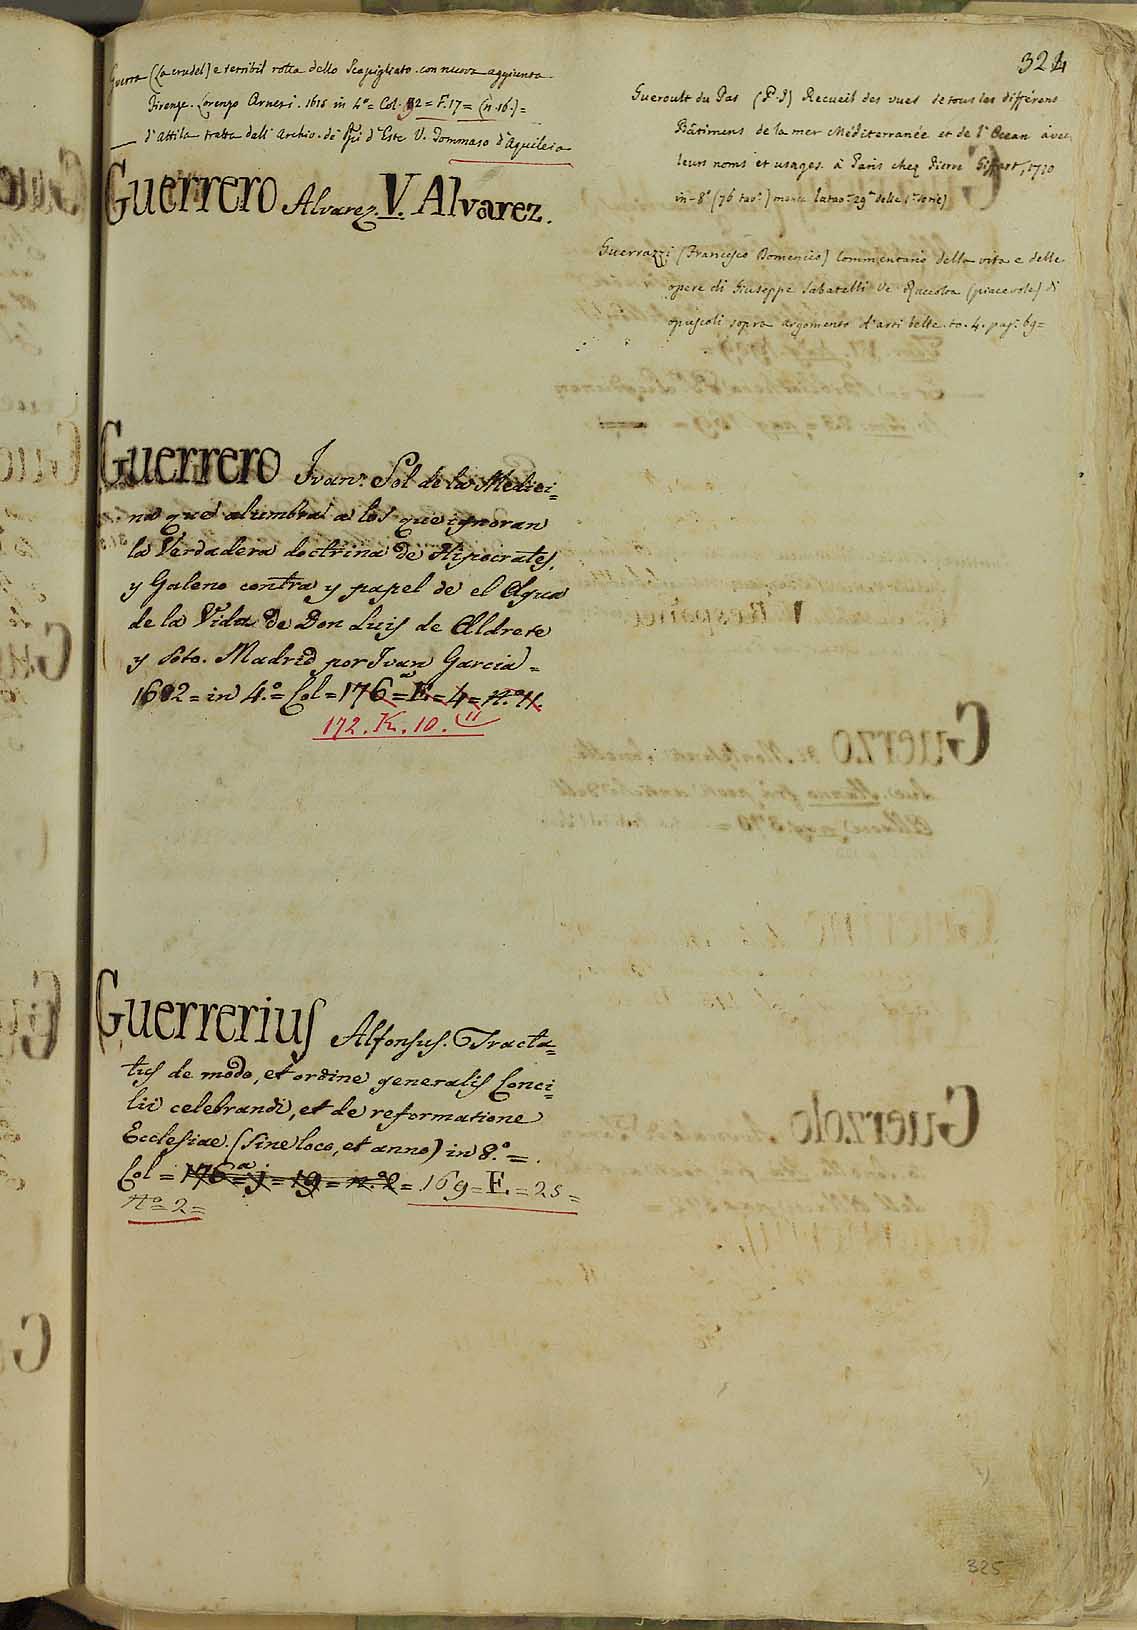 324
Guerra (La crudel) e terribil rotta dello Scapigliato con nuova aggiunta
Firenze. Lorenzo Arnesi. 1616 in 4.º = Col. 92 = F. 17 = (n. 16.) =
d'Attila tratta dall' Archiv. de' Ppi d'Este V. Tommaso d'Aquileia
Guerrero Alvarez. V. Alvarez.
Guerrero Ivan. Sol de la Medici=
na que alumbra a los que ignoran
la Verdadera doctrina de Hipocrates,
y Galeno contra y papel de el Agua
de la Vida de Don Luis de Aldrete
y Soto. Madrid por Ivan Garcia =
1682 = in 4.º = Col = 176 = E = 4 = n.º 11.
172. K. 10. 11
Guerrerius Alfonsus. Tracta=
tus de modo, et ordine generalis Conci=
lii celebrandi, et de reformatione
Ecclesiae. (sine loco, et anno) in 8.º =
Col = 176ª = j = 19 = n.º 2 = 169 = E. = 25 =
Nº = 2 =
Gueroult du Pas (P. J) Recueil des vues de tous les différens
Bâtimens de la mer Méditerranée et de l'Ocean avec
leurs noms et usages. à Paris chez Pierre Giffart, 1710
in-8º (76 tavº) manca la tavº 29ª della 1ª serie)
Guerrazzi (Francesco Domenico) Commentario della vita e delle
opere di Giuseppe Sabatelli Ve Raccolta (piacevole) di
opuscoli sopra argomento d'arti belle. to. 4. pag: 69 =
325